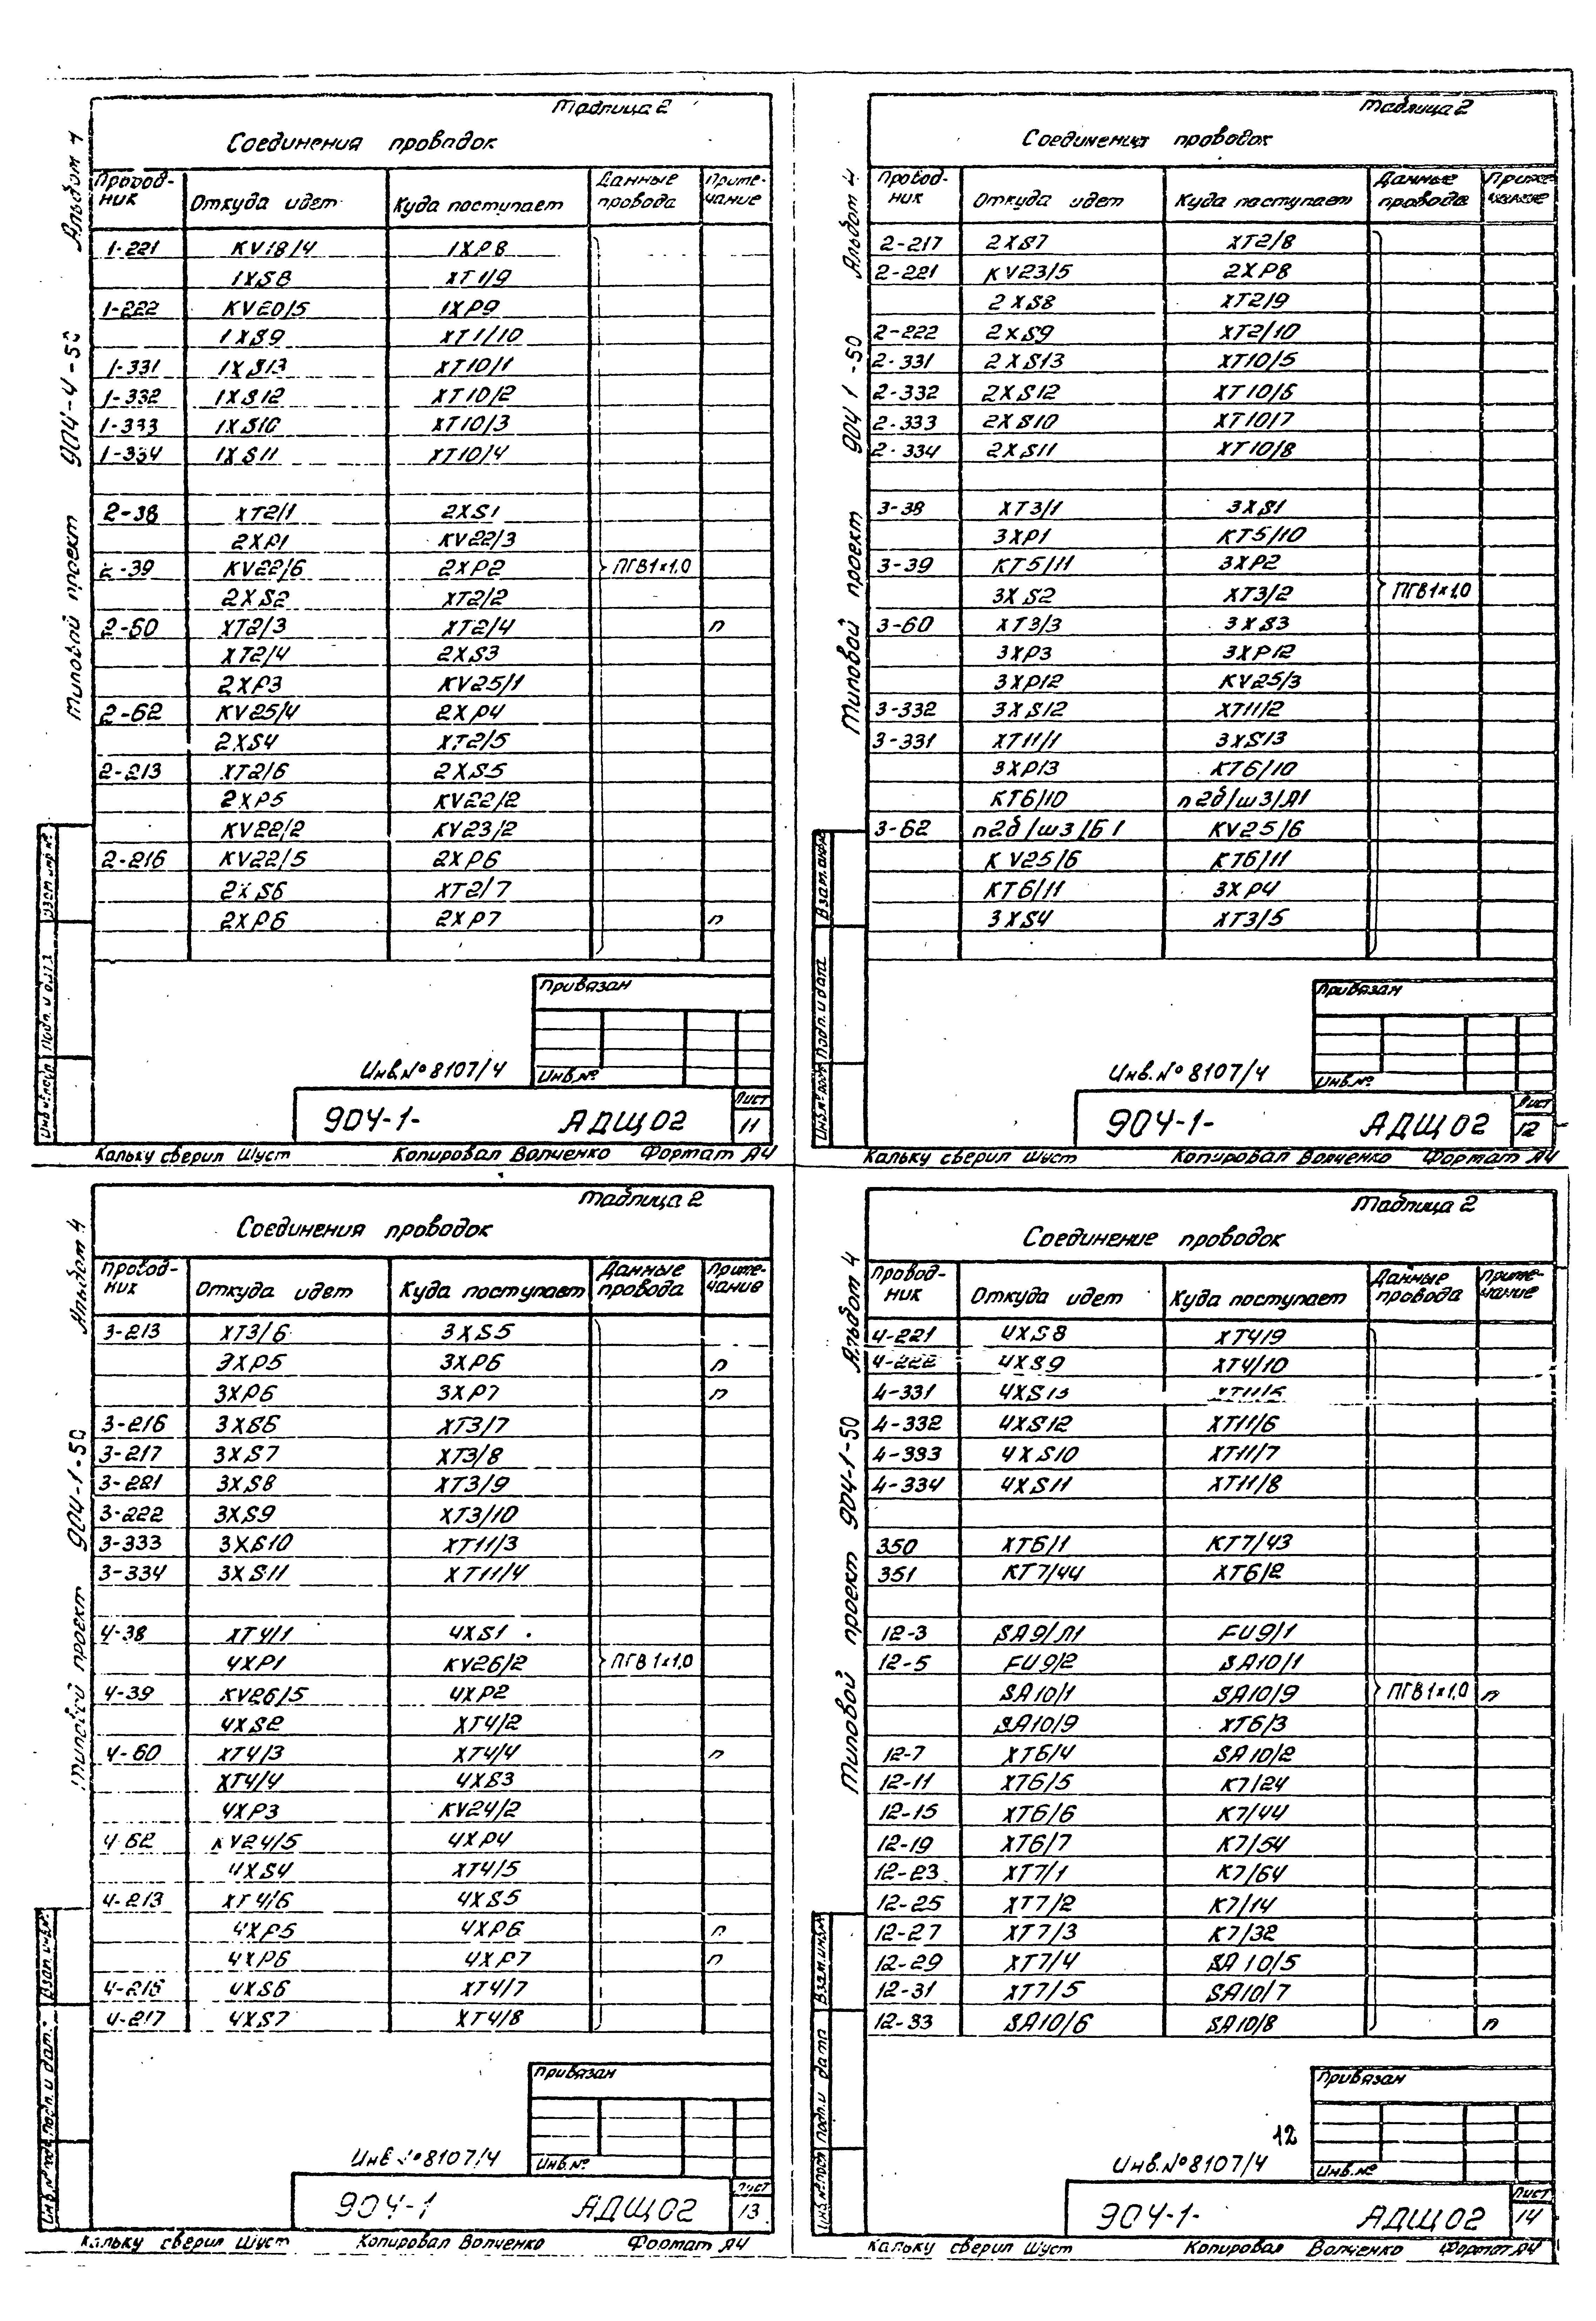 Таблица 2
Соединения проводок
Провод-ник Откуда идет Куда поступает Данные провода Приме-чание
1-221 KV18/4 1XP8
1XS8 XT1/9
1-222 KV20/5 1XP9
1XS9 XT1/10
1-331 1XS13 XT10/1
1-332 1XS12 XT10/2
1-333 1XS10 XT10/3
1-334 1XS11 XT10/4
2-38 XT2/1 2XS1
2XP1 KV22/3
2-39 KV22/6 2XP2 ПГВ1×1,0
2XS2 XT2/2
2-60 XT2/3 XT2/4 п
XT2/4 2XS3
2XP3 KV25/1
2-62 KV25/4 2XP4
2XS4 XT2/5
2-213 XT2/6 2XS5
2XP5 KV22/2
KV22/2 KV23/2
2-216 KV22/5 2XP6
2XS6 XT2/7
2XP6 2XP7 п
Привязан
Инв.№
Инв.№ 8107/4
904-1- АДЩ02
Лист
11
Кальку сверил Шуст Копировал Волченко Формат А4
Типовой проект 904-4-50 Альбом 4
Инв.№ подл. Подп. и дата Взам. инв.№
Таблица 2
Соединения проводок
Провод-ник Откуда идет Куда поступает Данные провода Приме-чание
2-217 2XS7 XT2/8
2-221 KV23/5 2XP8
2XS8 XT2/9
2-222 2XS9 XT2/10
2-331 2XS13 XT10/5
2-332 2XS12 XT10/6
2-333 2XS10 XT10/7
2-334 2XS11 XT10/8
3-38 XT3/1 3XS1
3XP1 KT5/10
3-39 KT5/11 3XP2
3XS2 XT3/2 ПГВ1×1,0
3-60 XT3/3 3XS3
3XP3 3XP12
3XP12 KV25/3
3-332 3XS12 XT11/2
3-331 XT11/1 3XS13
3XP13 KT6/10
KT6/10 п2б/ш3/А1
3-62 п2б/ш3/Б1 KV25/6
KV25/6 KT6/11
KT6/11 3XP4
3XS4 XT3/5
Привязан
Инв.№
Инв.№ 8107/4
904-1- АДЩ02
Лист
12
Кальку сверил Шуст Копировал Волченко Формат А4
Типовой проект 904 1 -50 Альбом 4
Инв.№ подл. Подп. и дата Взам. инв.№
Таблица 2
Соединения проводок
Провод-ник Откуда идет Куда поступает Данные провода Приме-чание
3-213 XT3/6 3XS5
3XP5 3XP6 п
3XP6 3XP7 п
3-216 3XS6 XT3/7
3-217 3XS7 XT3/8
3-221 3XS8 XT3/9
3-222 3XS9 XT3/10
3-333 3XS10 XT11/3
3-334 3XS11 XT11/4
4-38 XT4/1 4XS1
4XP1 KV26/2 ПГВ1×1,0
4-39 KV26/5 4XP2
4XS2 XT4/2
4-60 XT4/3 XT4/4 п
XT4/4 4XS3
4XP3 KV24/2
4-62 KV24/5 4XP4
4XS4 XT4/5
4-213 XT4/6 4XS5
4XP5 4XP6 п
4XP6 4XP7 п
4-216 4XS6 XT4/7
4-217 4XS7 XT4/8
Привязан
Инв.№
Инв.№ 8107/4
904-1 АДЩ02
Лист
13
Кальку сверил Шуст Копировал Волченко Формат А4
Типовой проект 904-1-50 Альбом 4
Инв.№ подл. Подп. и дат. Взам. инв.№
Таблица 2
Соединение проводок
Провод-ник Откуда идет Куда поступает Данные провода Приме-чание
4-221 4XS8 XT4/9
4-222 4XS9 XT4/10
4-331 4XS13 XT11/5
4-332 4XS12 XT11/6
4-333 4XS10 XT11/7
4-334 4XS11 XT11/8
350 XT6/1 KT7/43
351 KT7/44 XT6/2
12-3 SA9/Л1 FU9/1
12-5 FU9/2 SA10/1
SA10/1 SA10/9 ПГВ1×1,0 п
SA10/9 XT6/3
12-7 XT6/4 SA10/2
12-11 XT6/5 K7/24
12-15 XT6/6 K7/44
12-19 XT6/7 K7/54
12-23 XT7/1 K7/64
12-25 XT7/2 K7/14
12-27 XT7/3 K7/32
12-29 XT7/4 SA10/5
12-31 XT7/5 SA10/7
12-33 SA10/6 SA10/8 п
Привязан
12
Инв.№
Инв.№ 8107/4
904-1- АДЩ02
Лист
14
Кальку сверил Шуст Копировал Волченко Формат А4
Типовой проект 904-1-50 Альбом 4
Инв.№ подл. Подп. и дата Взам. инв.№